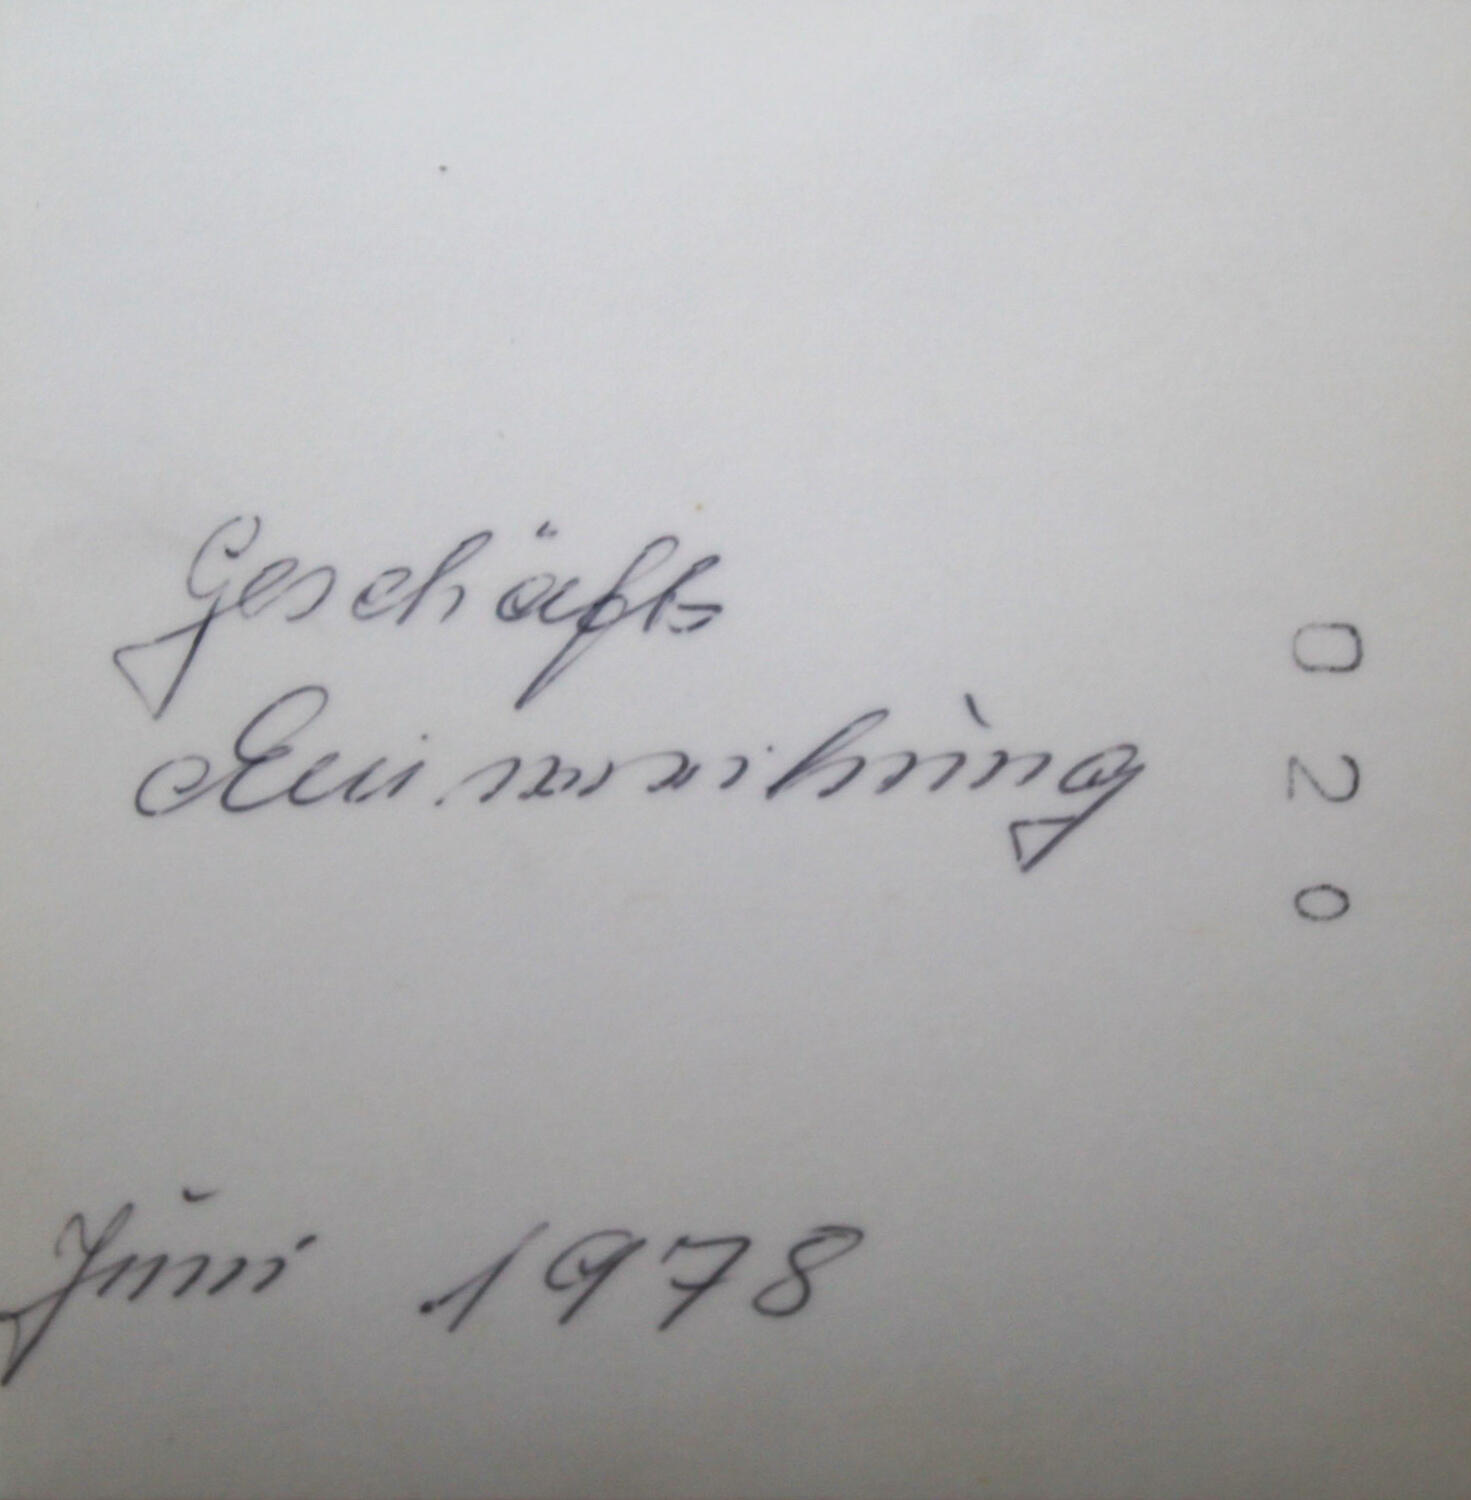 Geschäfts
Einweihung
Juni 1978
020